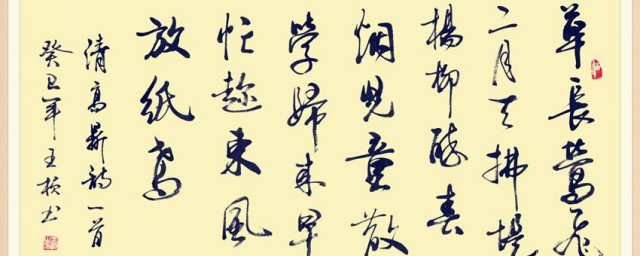 草長鶯飛
二月天拂堤
楊柳醉春
烟兒童散
學歸来早
忙趁東風
放紙鳶
清高鼎詩一首
癸年王书